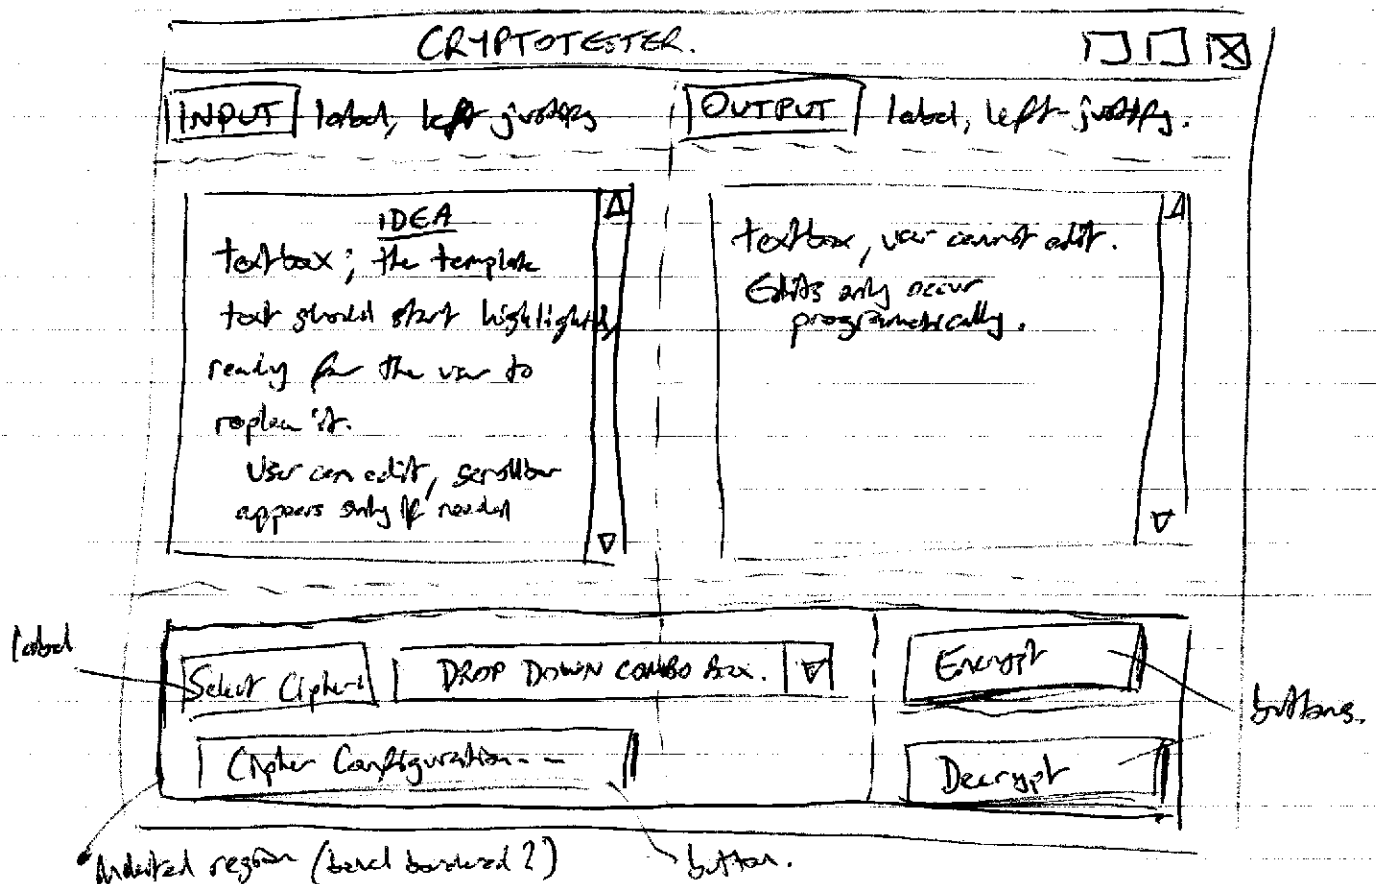 CRYPTOTESTER.
INPUT label, left justify
OUTPUT label, left justify.
IDEA
textbox; the template
text should start highlighted,
ready for the user to
replace it.
User can edit, scrollbar
appears only if needed
textbox, user cannot edit.
Edits only occur
programmatically.
label
Select Cipher:
DROP DOWN COMBO BOX.
Encrypt
buttons.
Cipher Configuration...
Decrypt
Indented region (bevel bordered?)
button.